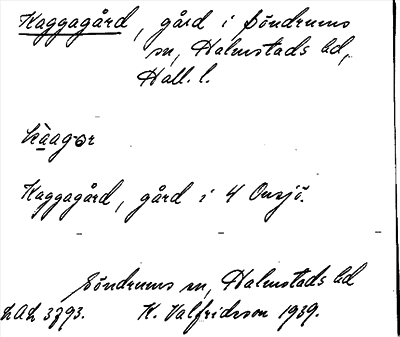 Kaggagård, gård i Söndrums
sn, Halmstads hd,
Hall. l.
Kaggagård, gård i 4 Onsjö.
Söndrums sn, Halmstads hd
LAL 3793. K. Valfridsson 1939.